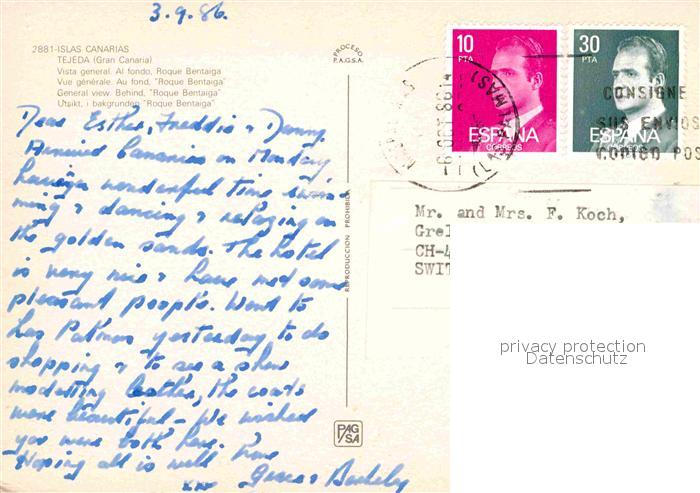 3.9.86.
2881-ISLAS CANARIAS
TEJEDA (Gran Canaria)
Vista general. Al fondo, Roque Bentaiga
Vue générale. Au fond, "Roque Bentaiga"
General view. Behind, "Roque Bentaiga"
Utsikt, i bakgrunden "Roque Bentaiga"
PROCESO
P.A.G.S.A.
10
PTA
ESPAÑA
CORREOS
30
PTA
ESPAÑA
CORREOS
(LAS PALMAS)
CONSIGNE
SUS ENVIOS
CODIGO POS
Dear Esther, Freddie & Danny
Arrived Canarias on Monday,
having a wonderful time swim
ming & dancing & relaxing on
the golden sands. The hotel
is very nice & have met some
pleasant people. Went to
Las Palmas yesterday to do
shopping & to see a show
modelling leather, the coats
were beautiful - We wished
you were both here.
Hoping all is well
love
REPRODUCCION PROHIBIDA
PAG/
SA
Mr. and Mrs. F. Koch,
Grel
CH-4
SWIT
privacy protection
Datenschutz